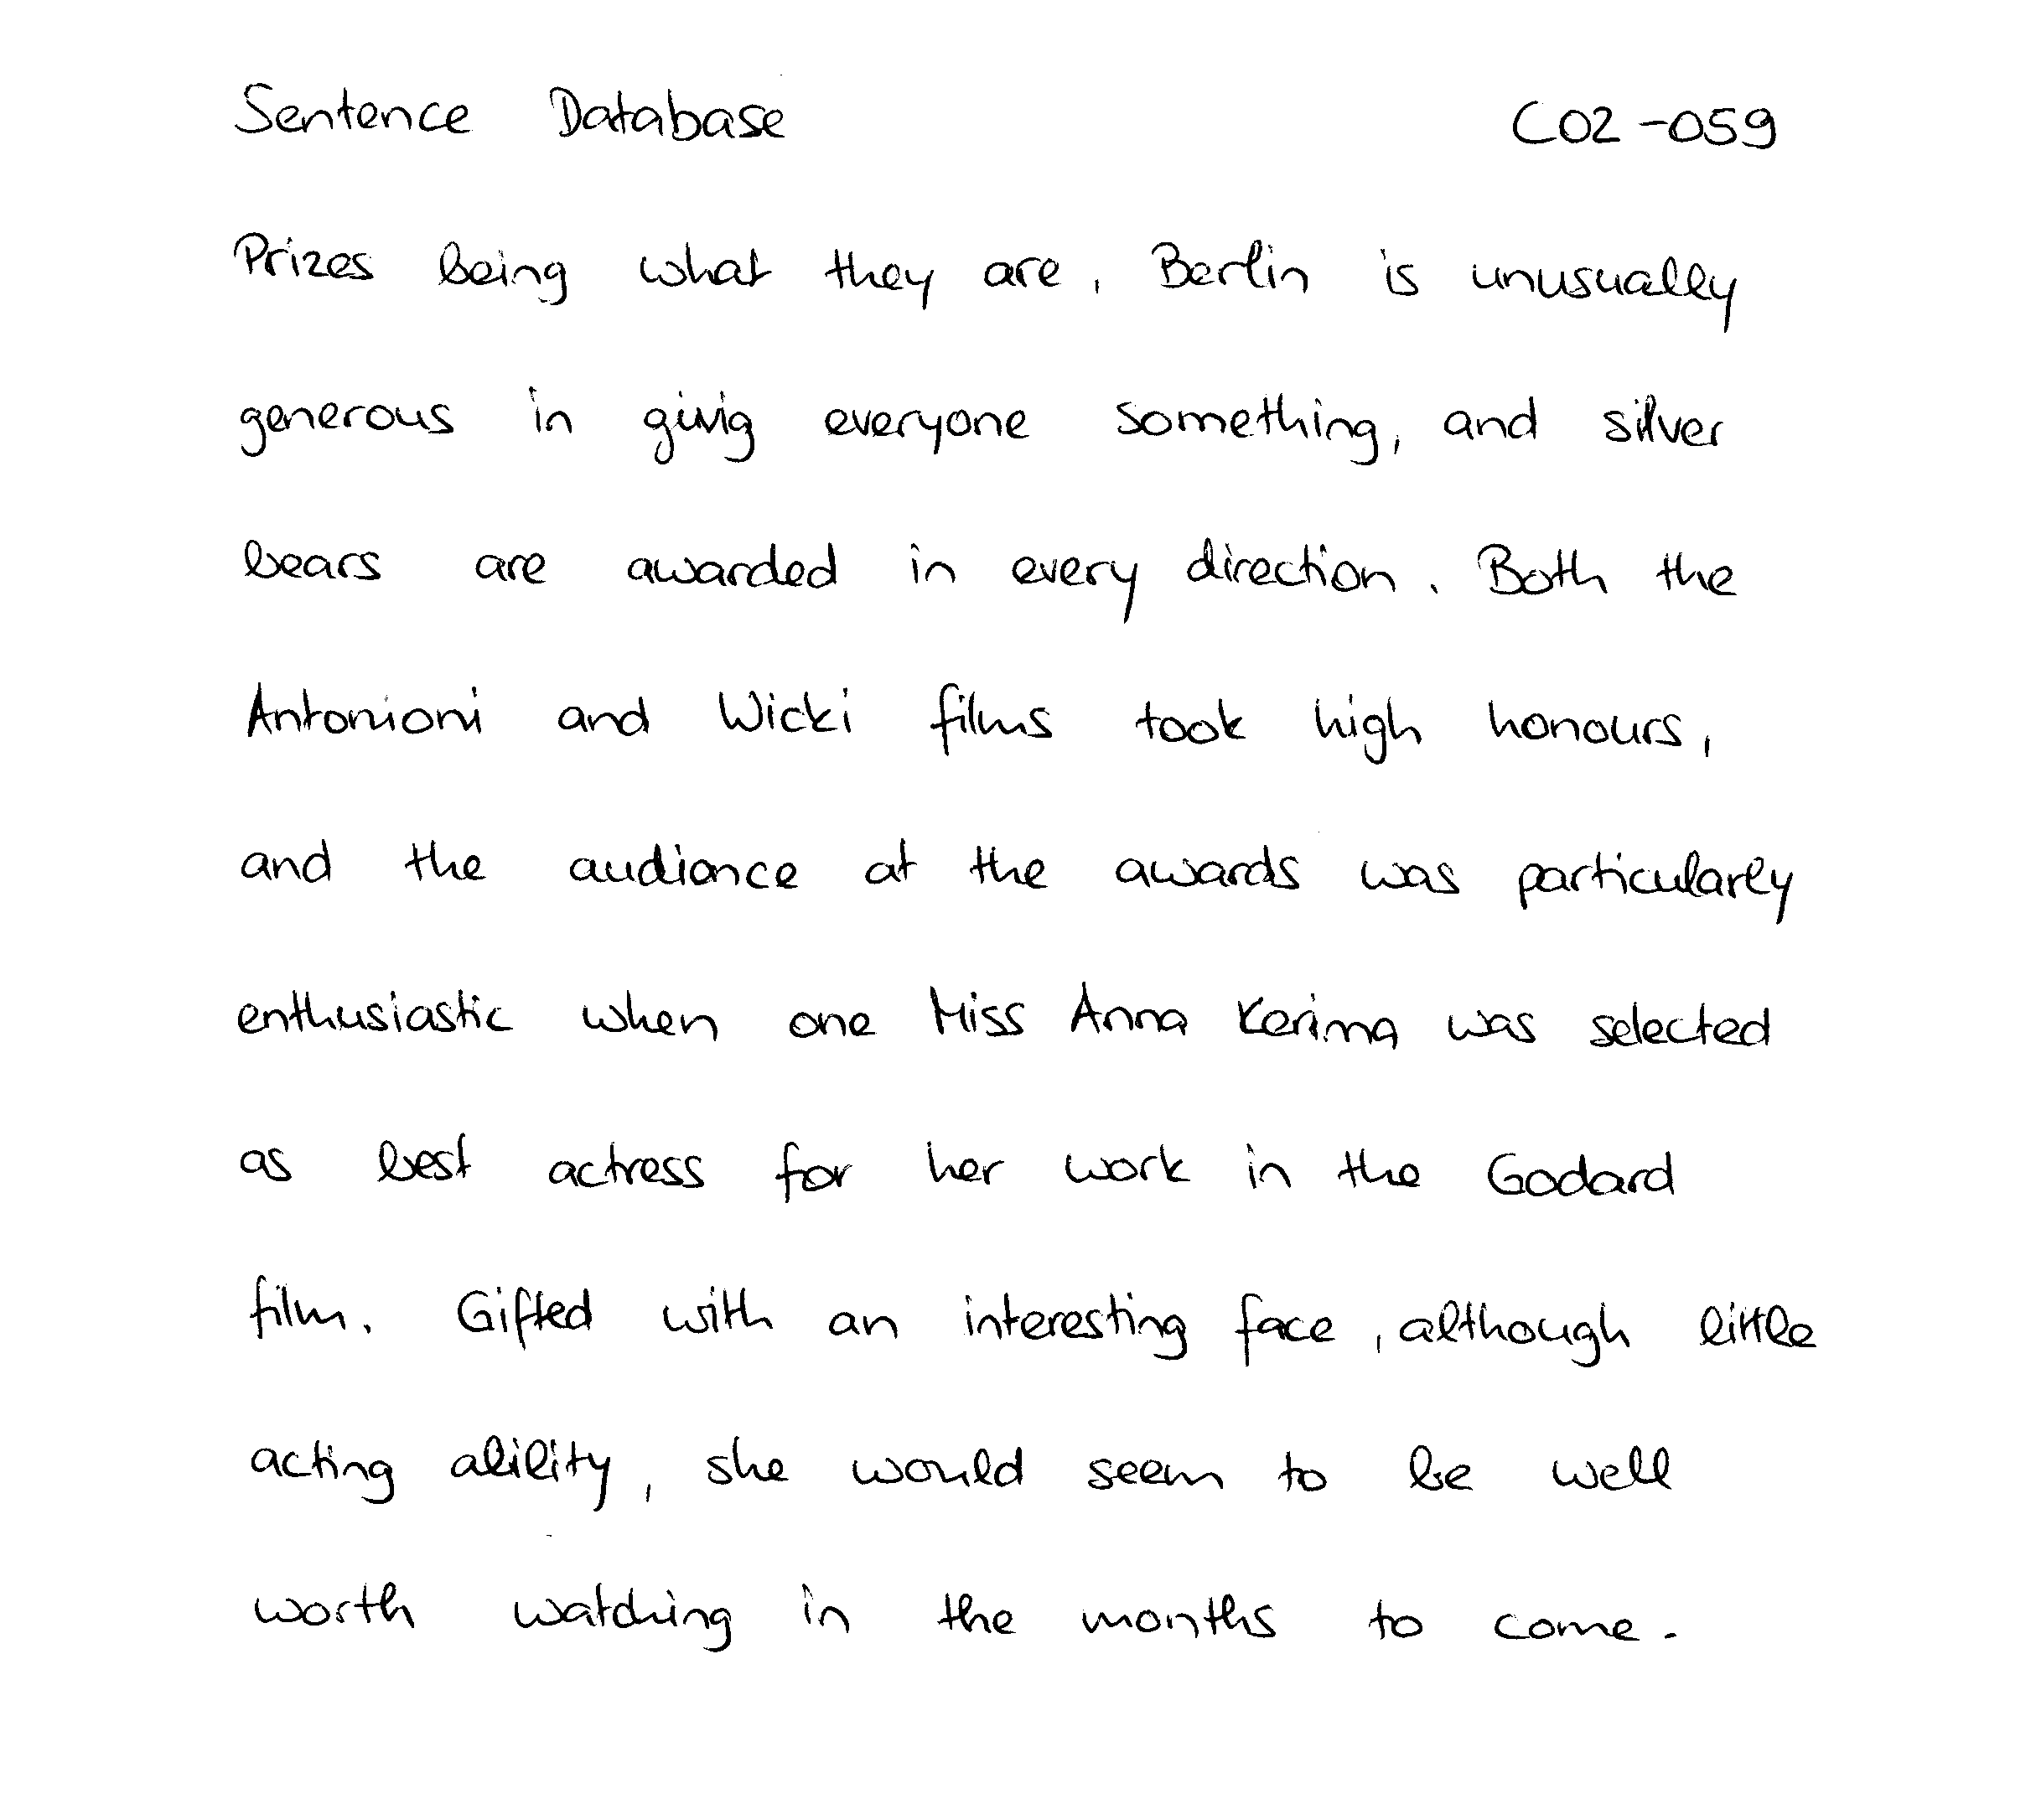 Sentence Database C02-059
Prizes being what they are, Berlin is unusually
generous in givig everyone something, and silver
bears are awarded in every direction. Both the
Antonioni and Wicki films took high honours,
and the audiance at the awards was particularly
enthusiastic when one Miss Anna Kerima was selected
as best actress for her work in the Godard
film. Gifted with an interesting face, although little
acting ability, she would seem to be well
worth watching in the months to come.